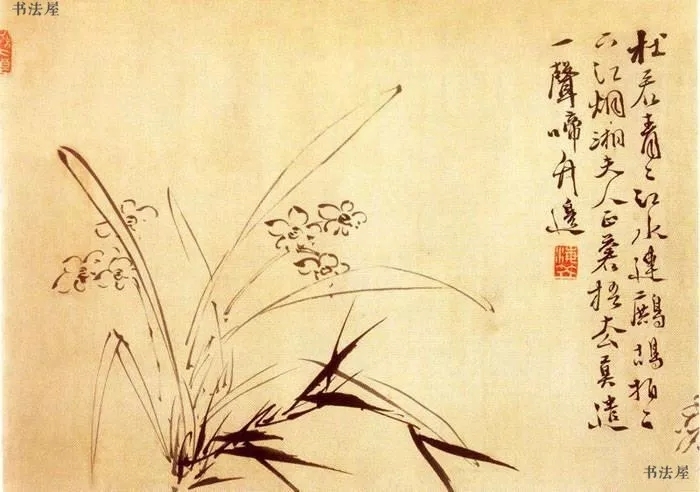 书法屋
杜若青〻江水連鷓鴣拍〻
下江烟湘夫人正蒼梧去莫遣
一聲啼竹邊
书法屋